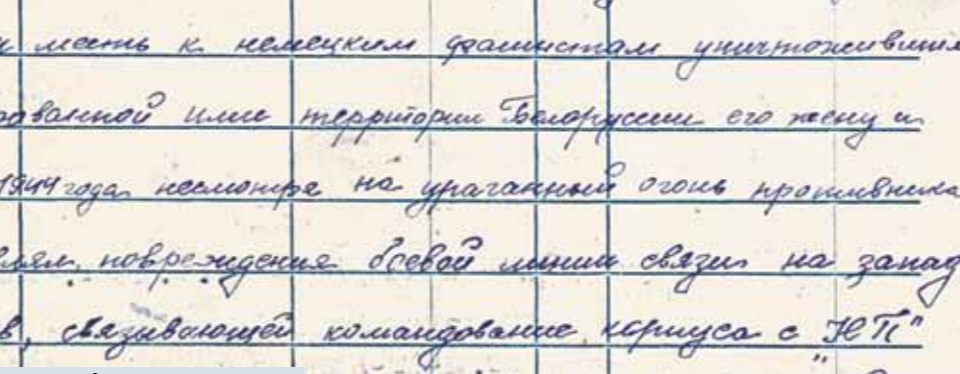 и месть к немецким фашистам уничтожившим
ованной ими территории Белоруссии его жену и
1944 года несмотря на ураганный огонь противника
влял повреждения боевой линии связи на запад
в, связывающей командование корпуса с "НП"